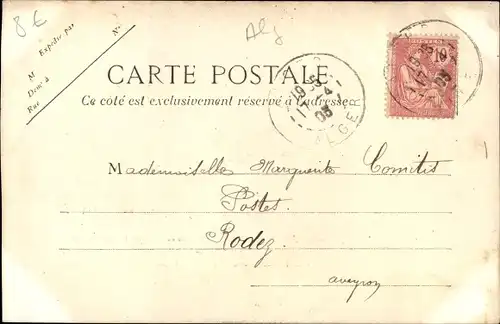 8 €
Alg
Expédié par
N°.
M
Dem.t à
Rue
CARTE POSTALE
Ce côté est exclusivement réservé à l'adresse
POSTES
10
19 35
17 -4
03
ALGER
Mademoiselle Marguerite Comitis
Postes
Rodez
aveyron